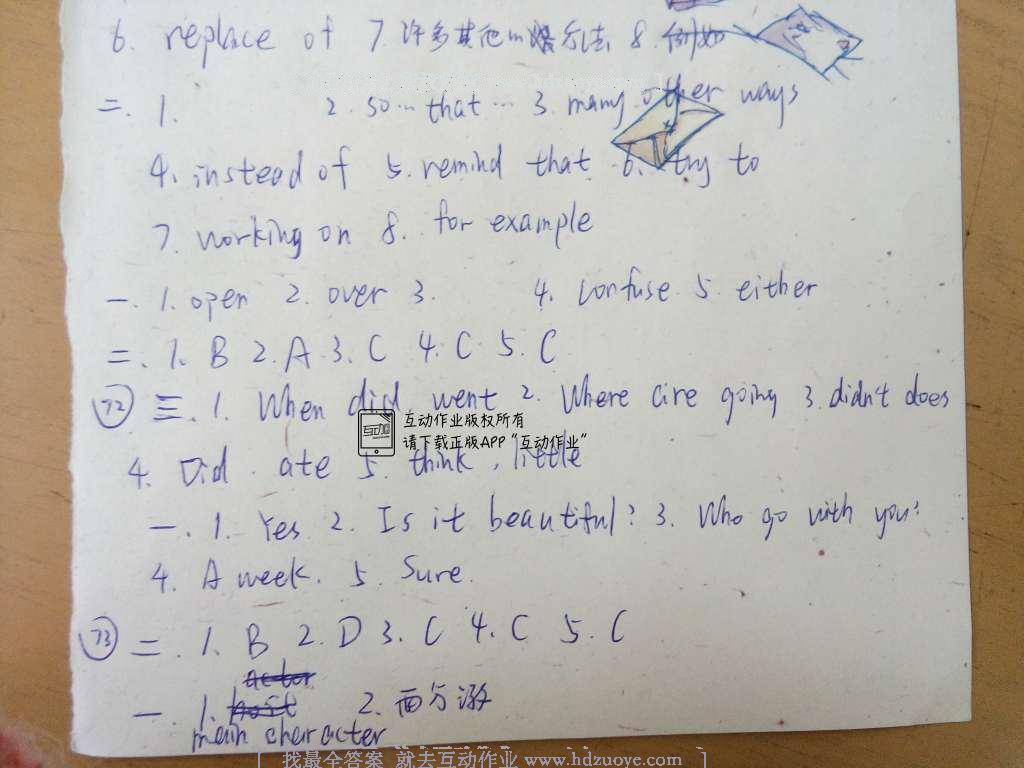 6. replace of 7. 许多其他的方法 8. 例如
二. 1. 2. so...that... 3. many other ways
4. instead of 5. remind that 6. try to
7. working on 8. for example
一. 1. open 2. over 3. 4. confuse 5. either
二. 1. B 2. A 3. C 4. C 5. C
72 三. 1. When did went 2. Where are going 3. didn't does
互动作业版权所有
请下载正版APP“互动作业”
4. Did ate 5. think, little
一. 1. Yes 2. Is it beautiful? 3. Who go with you?
4. A week. 5. Sure.
73 二. 1. B 2. D 3. C 4. C 5. C
actor
一. 1. host 2. 面与游
main character
找最全答案 就去互动作业 www.hdzuoye.com